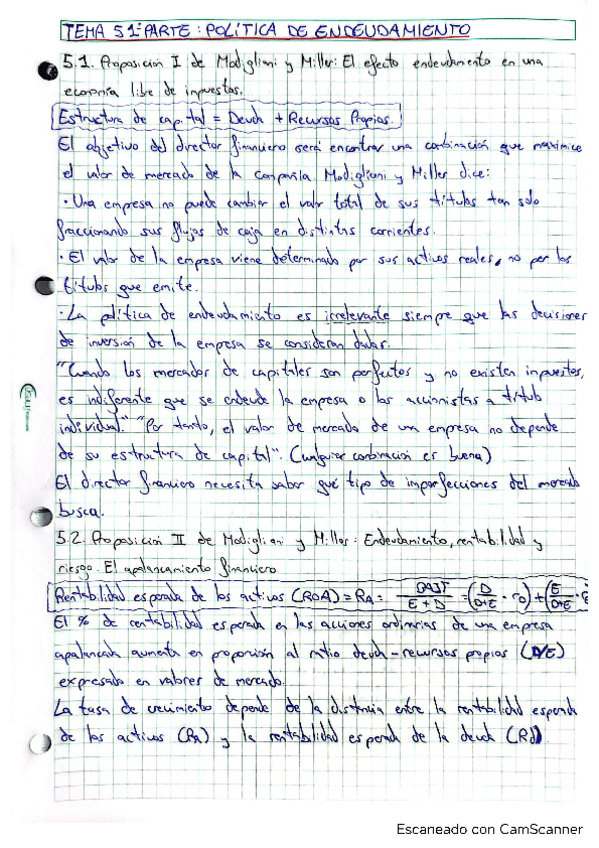 TEMA 5 1ª PARTE: POLÍTICA DE ENDEUDAMIENTO
5.1. Proposición I de Modigliani y Miller: El efecto endeudamiento en una
economía libre de impuestos.
Estructura de capital = Deuda + Recursos Propios.
El objetivo del director financiero será encontrar una combinación que maximice
el valor de mercado de la compañía. Modigliani y Miller dice:
· Una empresa no puede cambiar el valor total de sus títulos tan solo
fraccionando sus flujos de caja en distintas corrientes.
· El valor de la empresa viene determinado por sus activos reales, no por los
títulos que emite.
· La política de endeudamiento es irrelevante siempre que las decisiones
de inversión de la empresa se consideran dadas.
"Cuando los mercados de capitales son perfectos y no existen impuestos,
es indiferente que se endeude la empresa o los accionistas a título
individual." "Por tanto, el valor de mercado de una empresa no depende
de su estructura de capital". (Cualquier combinación es buena)
El director financiero necesita saber qué tipo de imperfecciones del mercado
busca.
5.2. Proposición II de Modigliani y Miller: Endeudamiento, rentabilidad y
riesgo. El apalancamiento financiero
Rentabilidad esperada de los activos (ROA) = RA = BAIT / E + D = (D / D+E · rD) + (E / D+E ·
El % de rentabilidad esperada en las acciones ordinarias de una empresa
apalancada aumenta en proporción al ratio deuda-recursos propios (D/E)
expresado en valores de mercado.
La tasa de crecimiento depende de la distancia entre la rentabilidad esperada
de los activos (RA) y la rentabilidad esperada de la deuda (Rd).
Escaneado con CamScanner